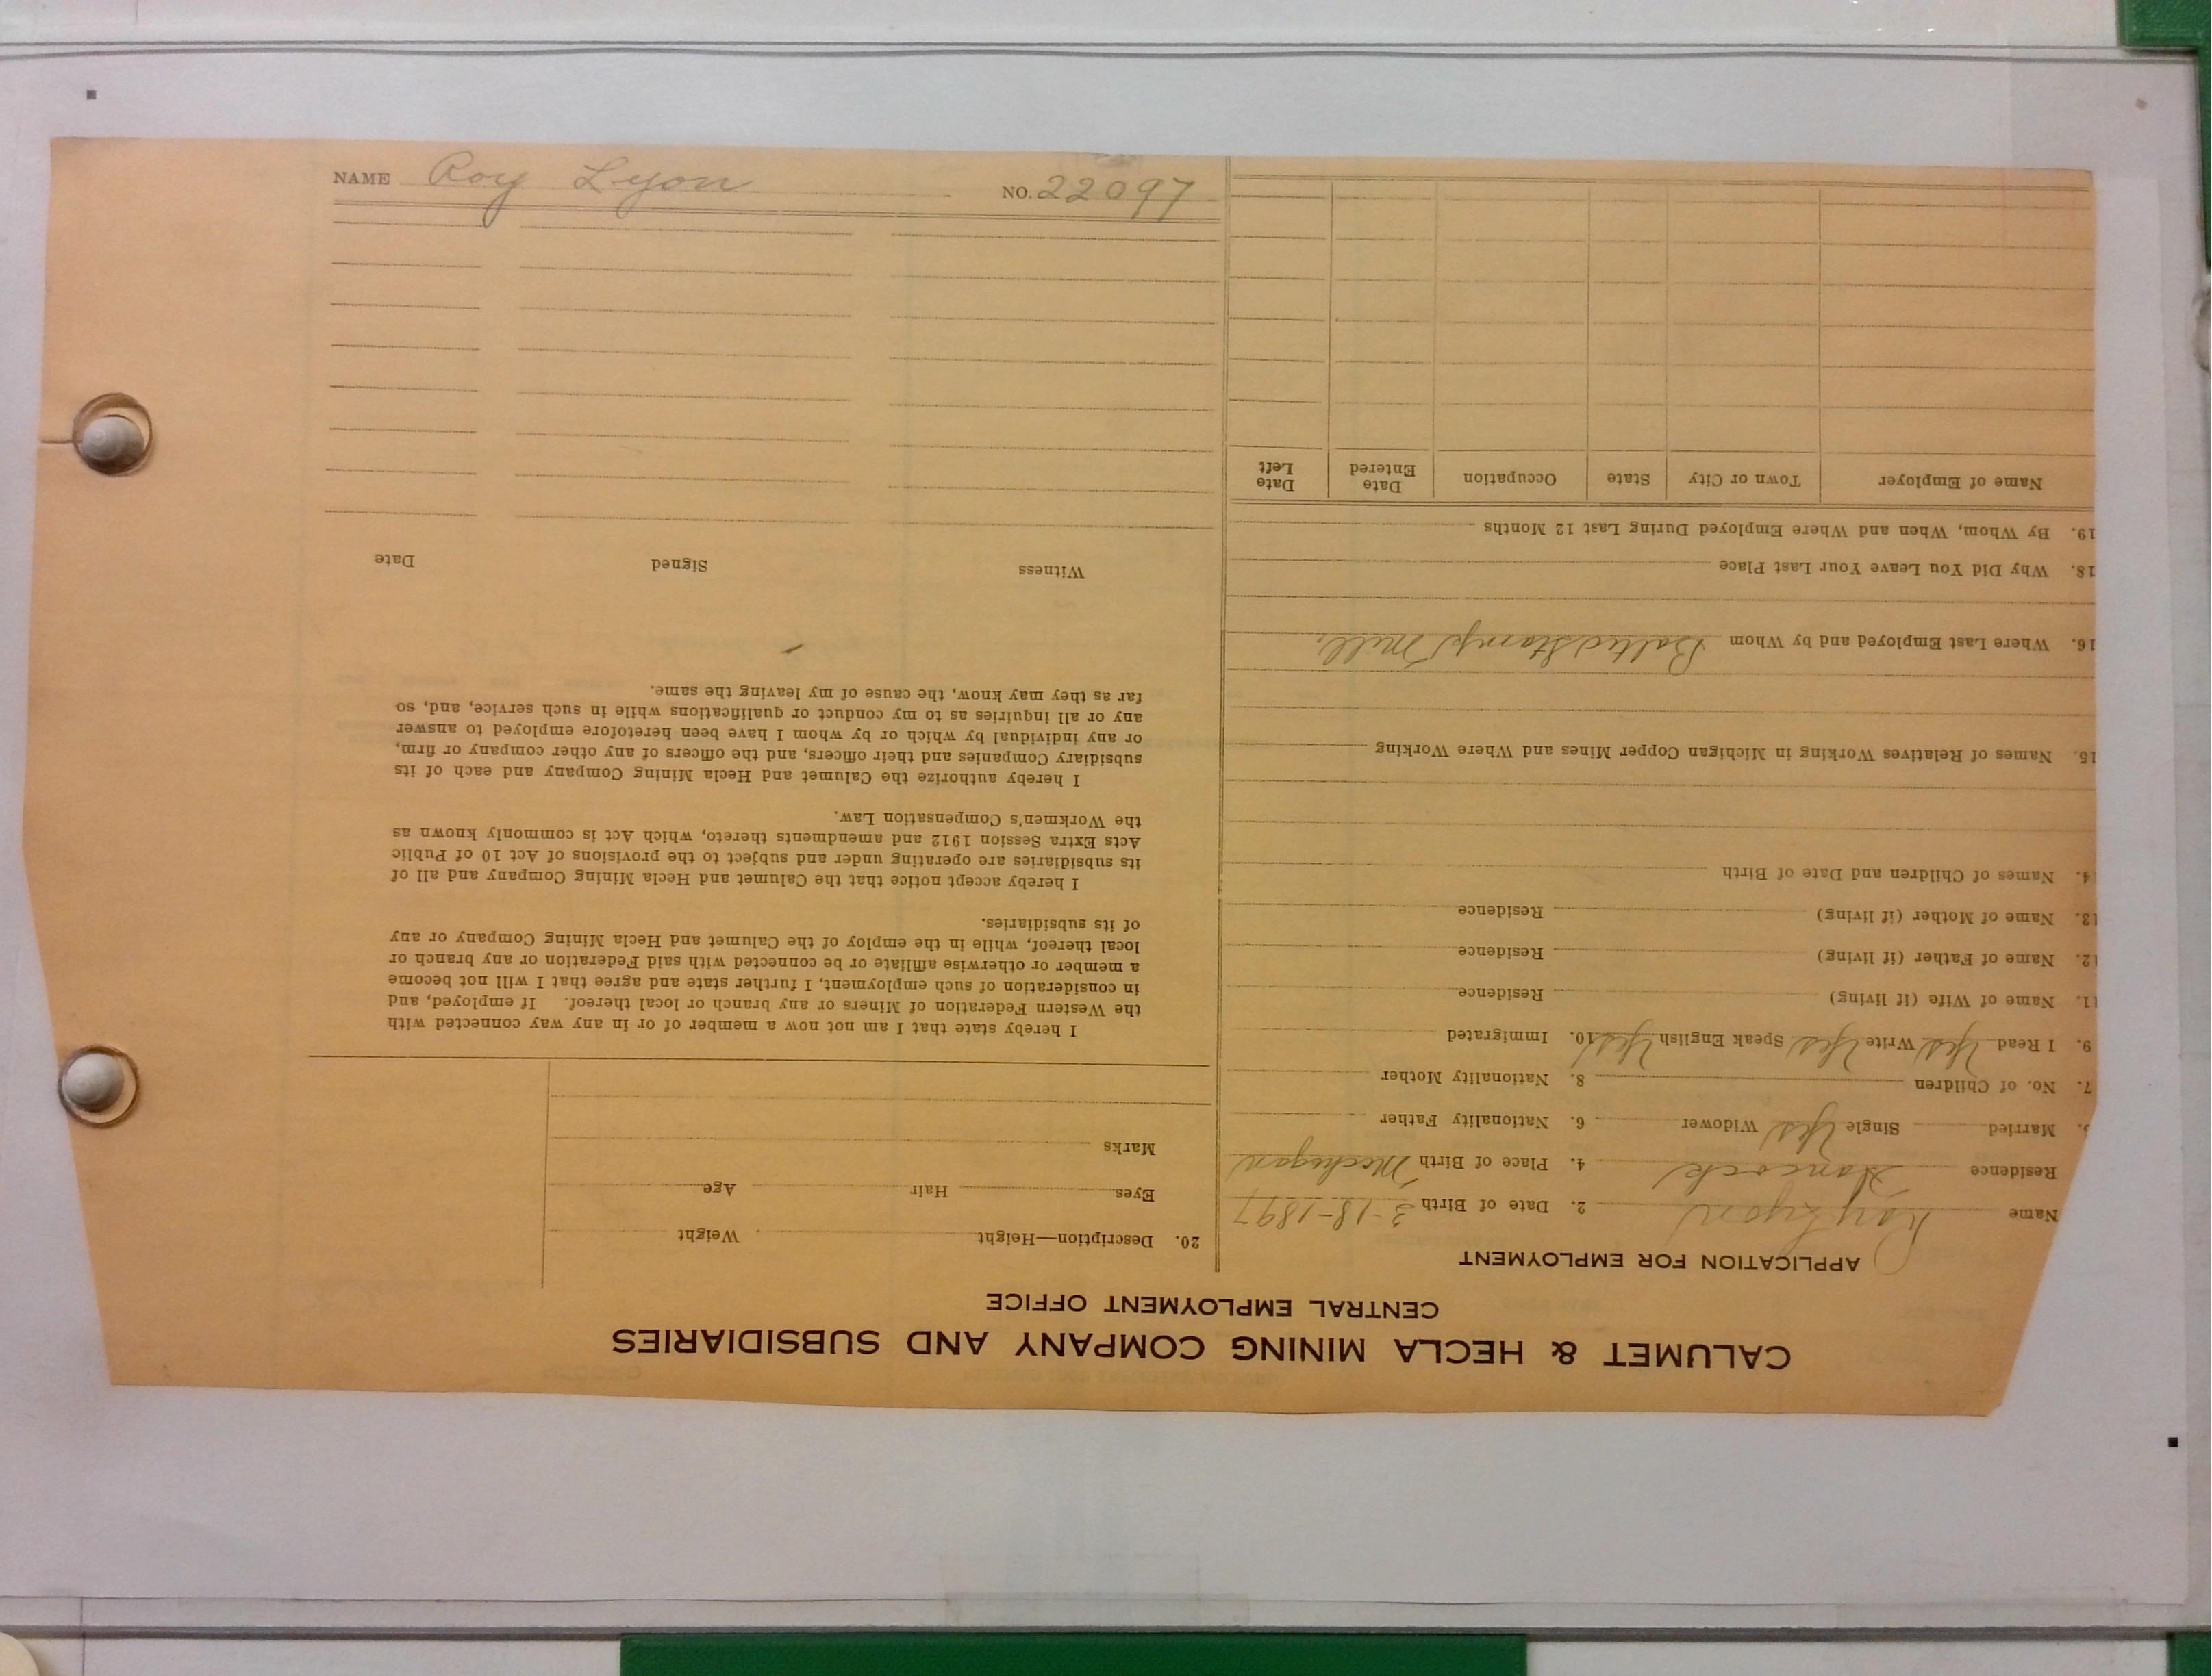 CALUMET & HECLA MINING COMPANY AND SUBSIDIARIES
CENTRAL EMPLOYMENT OFFICE
APPLICATION FOR EMPLOYMENT
Name Roy Lyon 2. Date of Birth 3-18-1897
Residence Hancock 4. Place of Birth Michigan
5. Married Single Yes Widower 6. Nationality Father
7. No. of Children 8. Nationality Mother
9. I Read Yes Write Yes Speak English Yes 10. Immigrated
11. Name of Wife (if living) Residence
12. Name of Father (if living) Residence
13. Name of Mother (if living) Residence
14. Names of Children and Date of Birth
15. Names of Relatives Working in Michigan Copper Mines and Where Working
16. Where Last Employed and by Whom Baltic Stamp Mill.
18. Why Did You Leave Your Last Place
19. By Whom, When and Where Employed During Last 12 Months
Name of Employer Town or City State Occupation Date Entered Date Left
20. Description—Height Weight
Eyes Hair Age
Marks
I hereby state that I am not now a member of or in any way connected with
the Western Federation of Miners or any branch or local thereof. If employed, and
in consideration of such employment, I further state and agree that I will not become
a member or otherwise affiliate or be connected with said Federation or any branch or
local thereof, while in the employ of the Calumet and Hecla Mining Company or any
of its subsidiaries.
I hereby accept notice that the Calumet and Hecla Mining Company and all of
its subsidiaries are operating under and subject to the provisions of Act 10 of Public
Acts Extra Session 1912 and amendments thereto, which Act is commonly known as
the Workmen's Compensation Law.
I hereby authorize the Calumet and Hecla Mining Company and each of its
subsidiary Companies and their officers, and the officers of any other company or firm,
or any individual by which or by whom I have been heretofore employed to answer
any or all inquiries as to my conduct or qualifications while in such service, and, so
far as they may know, the cause of my leaving the same.
Witness Signed Date
NAME Roy Lyon NO. 22097